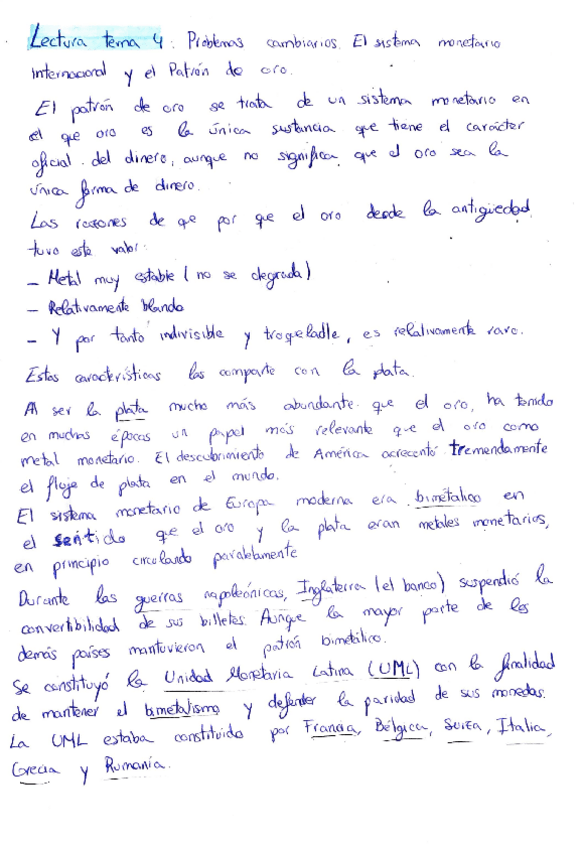 Lectura tema 4: Problemas cambiarios. El sistema monetario
Internacional y el Patrón de oro.
El patrón de oro se trata de un sistema monetario en
el que oro es la única sustancia que tiene el carácter
oficial del dinero, aunque no significa que el oro sea la
única forma de dinero.
Las razones de que por que el oro desde la antigüedad
tuvo este valor:
- Metal muy estable (no se degrada)
- Relativamente blando
- Y por tanto indivisible y troqueladle, es relativamente raro.
Estas características las comparte con la plata.
Al ser la plata mucho más abundante que el oro, ha tenido
en muchas épocas un papel más relevante que el oro como
metal monetario. El descubrimiento de América acrecentó tremendamente
el flujo de plata en el mundo.
El sistema monetario de Europa moderna era bimétalico en
el sentido que el oro y la plata eran metales monetarios,
en principio circulando paralelamente
Durante las guerras napoleónicas, Inglaterra (el banco) suspendió la
convertibilidad de sus billetes. Aunque la mayor parte de los
demás países mantuvieron el patrón bimetálico.
Se constituyó la Unidad Monetaria Latina (UML) con la finalidad
de mantener el bimetalismo y defender la paridad de sus monedas.
La UML estaba constituido por Francia, Bélgica, Suiza, Italia,
Grecia y Rumanía.